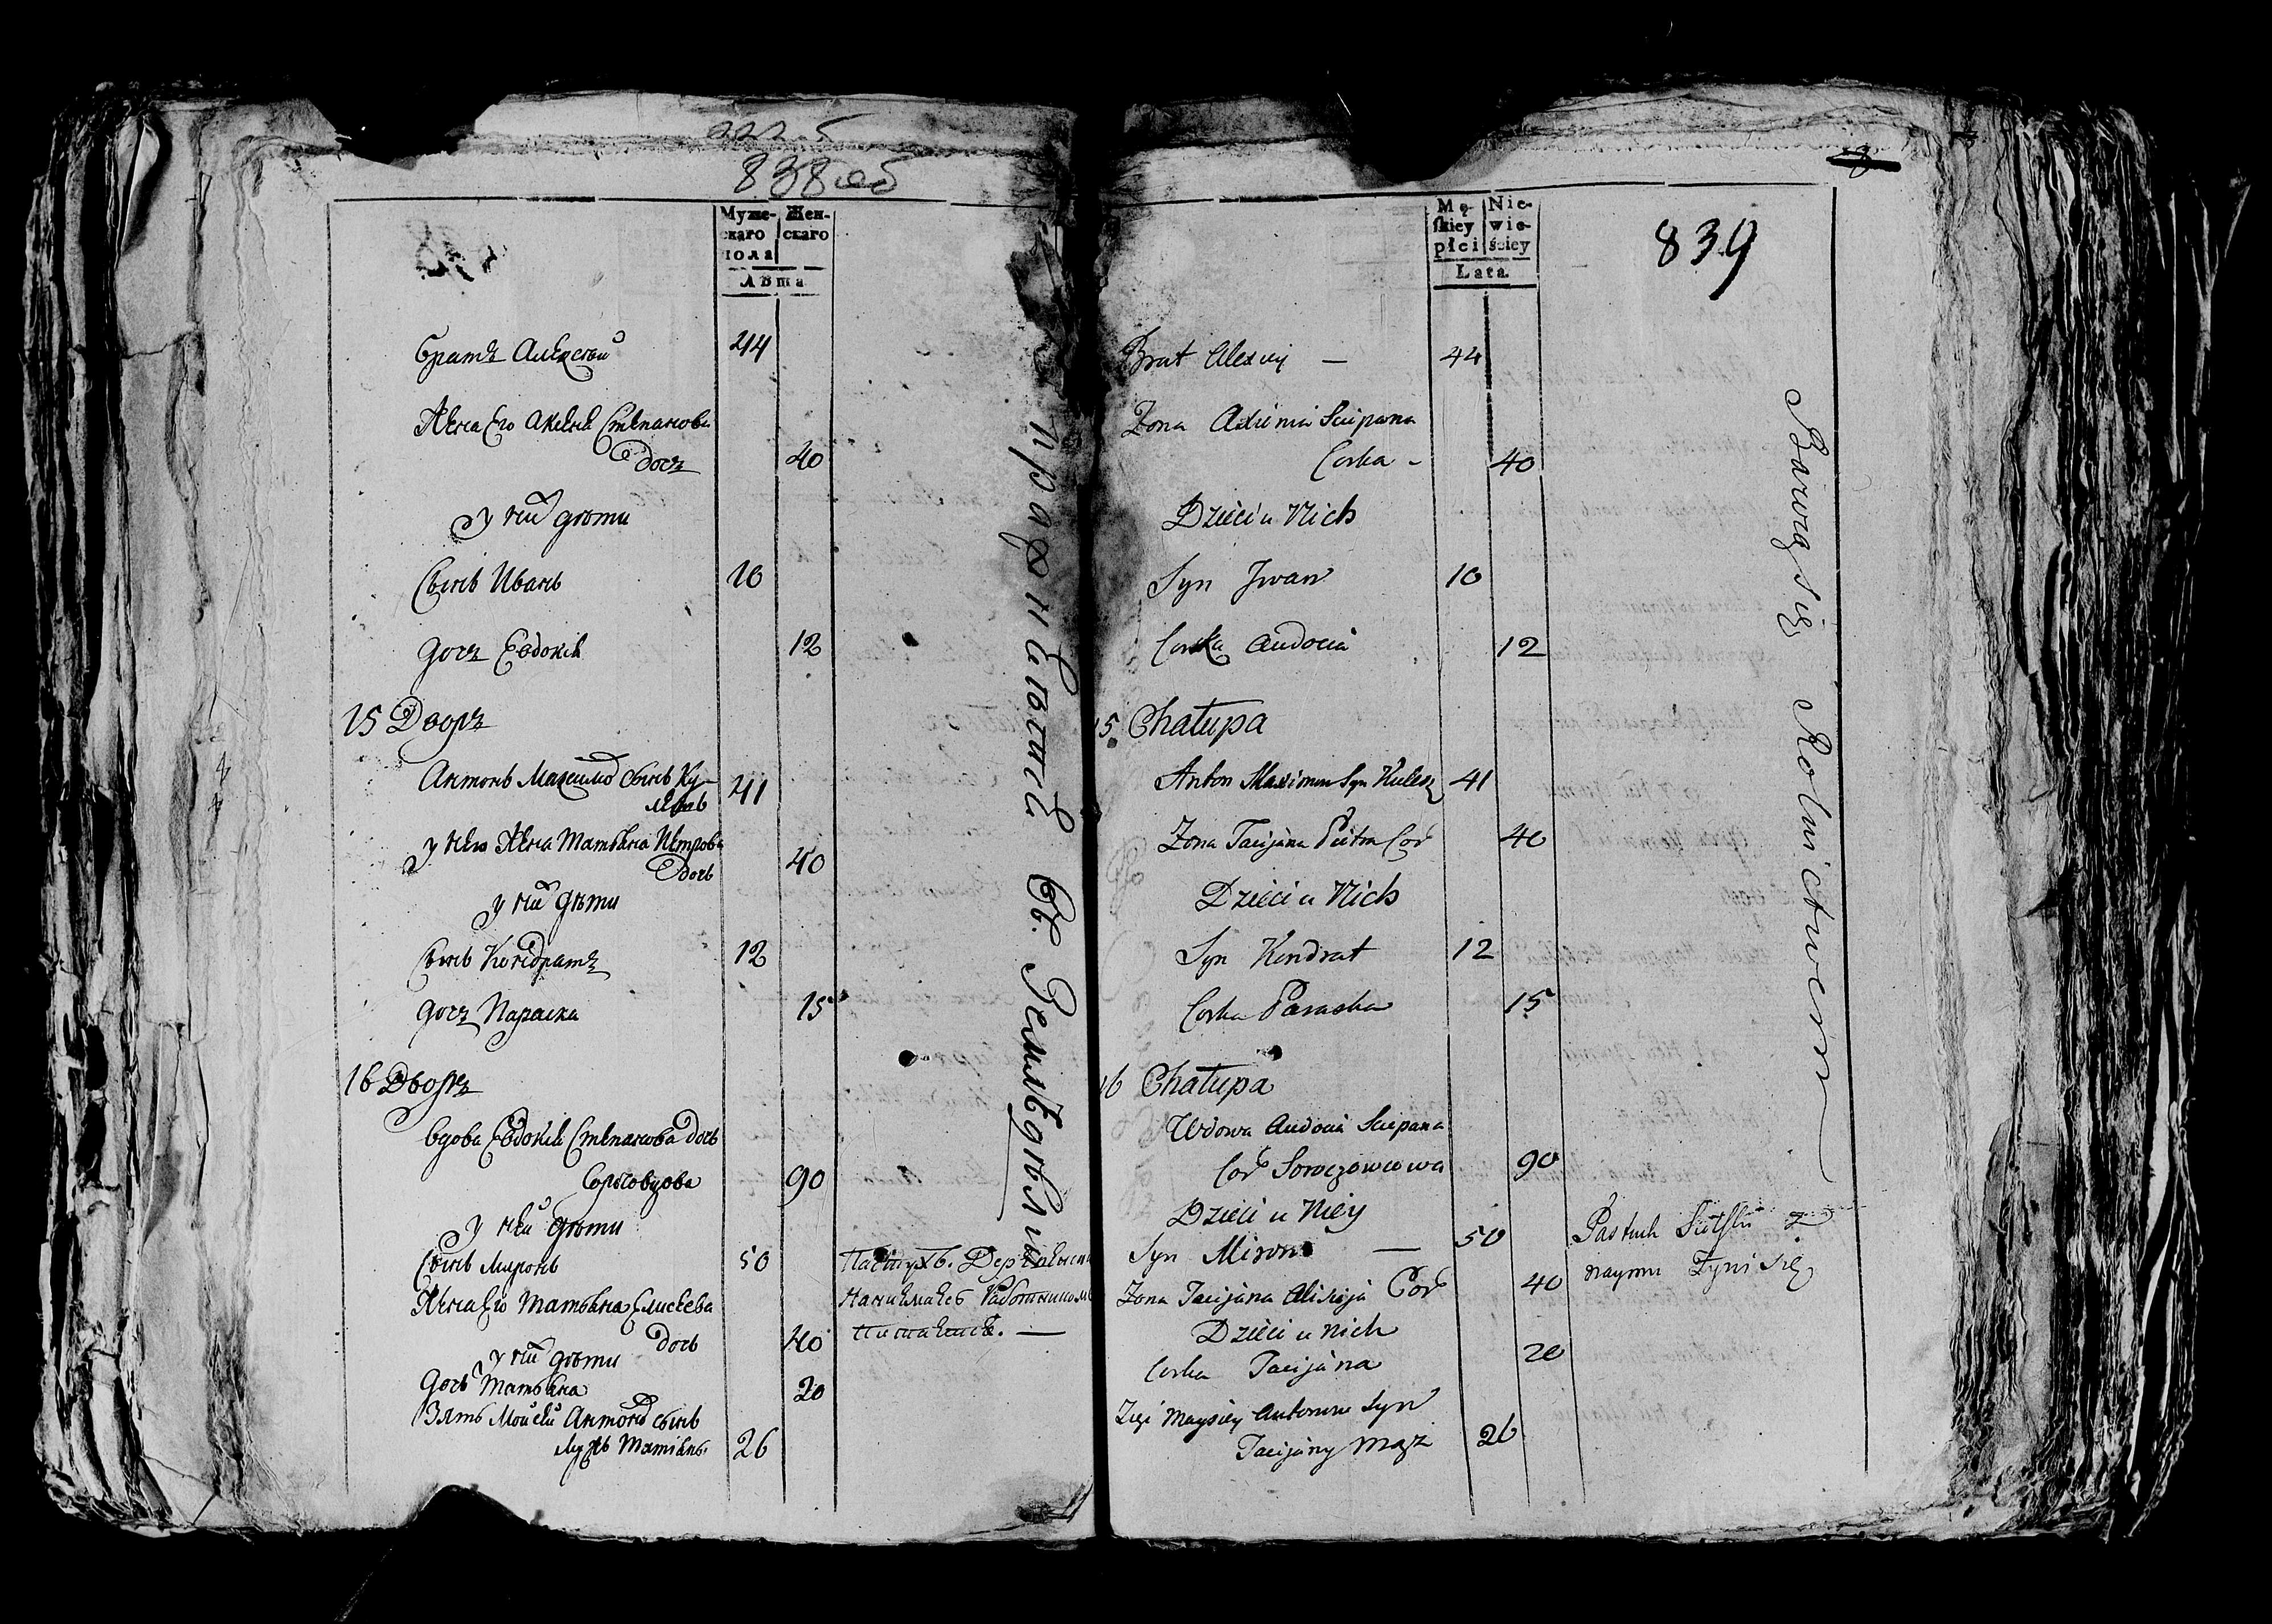 838 об
Муже-
скаго
пола
Жен-
скаго
Лѣта
братъ Алексѣй 44
Жена Его Аксенѣ Степанова
дочь 40
у них дѣти
Сынъ Иванъ 10
дочь Евдокія 12
15 Дворъ
Антонъ Максимов Сынъ Ку-
лешъ 41
у него Жена Татьяна Петрова
дочь 40
у них дѣти
Сынъ Кондратъ 12
дочь Параска 15
16 Дворъ
вдова Евдокія Степанова дочь
90
у ней дѣти
Сынъ Миронъ 50
Жена Его Татьяна Елисеева
дочь 40
у них дѣти
дочь Татьяна 20
Зять Мойсей Антонов сынъ
мужъ Татіяны 26
Пастухъ.
Работником
Питается.
Земледѣліи
Mę-
skiey
płci
Nie-
wie-
ściey
Lata
839
Brat Alexiey — 44
Zona Axinia Sciepana
Corka - 40
Dzieci u Nich
Syn Jwan 10
Corka Audocia 12
15 Chałupa
Anton Maxima Syn Kulesz 41
Zona Tacijana Pietra Cor 40
Dzieci u Nich
Syn Kondrat 12
Corka Paraska 15
16 Chałupa
Wdowa Audocia Sciepana
Cor Soroczowcowa 90
Dzieci u Niey
Syn Miron — 50
Zona Tacijana Alisieja Cor 40
Dzieci u nich
Corka Tacijana 20
Zięć Maysiey Antonow Syn
Tacijany mąż 26
Bawią się Rolnictwem
Pastuch z
naymu Żywi się